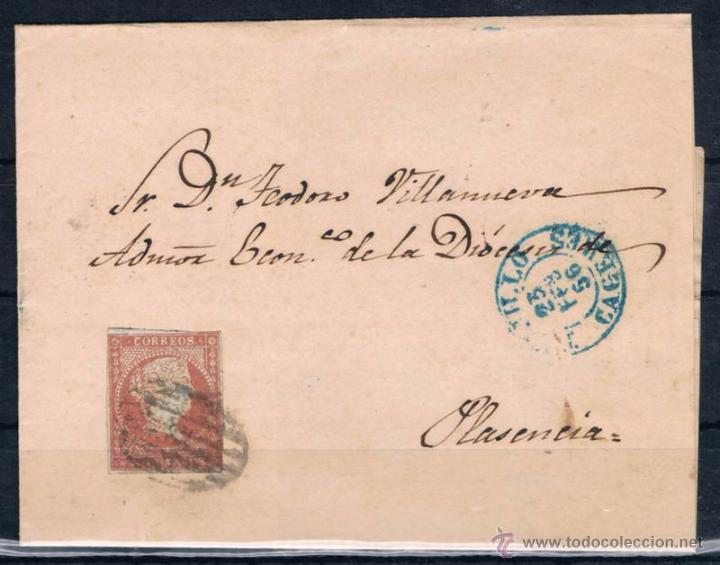 Sr. Dn. Teodoro Villanueva
Admõr Econ.co de la Diócesis de
Plasencia=
CORREOS
CACERES
23
56
© www.todocoleccion.net